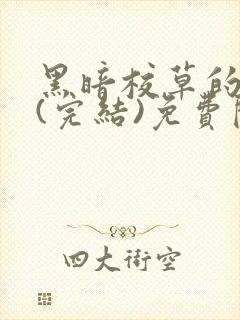 黑暗校草的
(完結)免費
四大街空